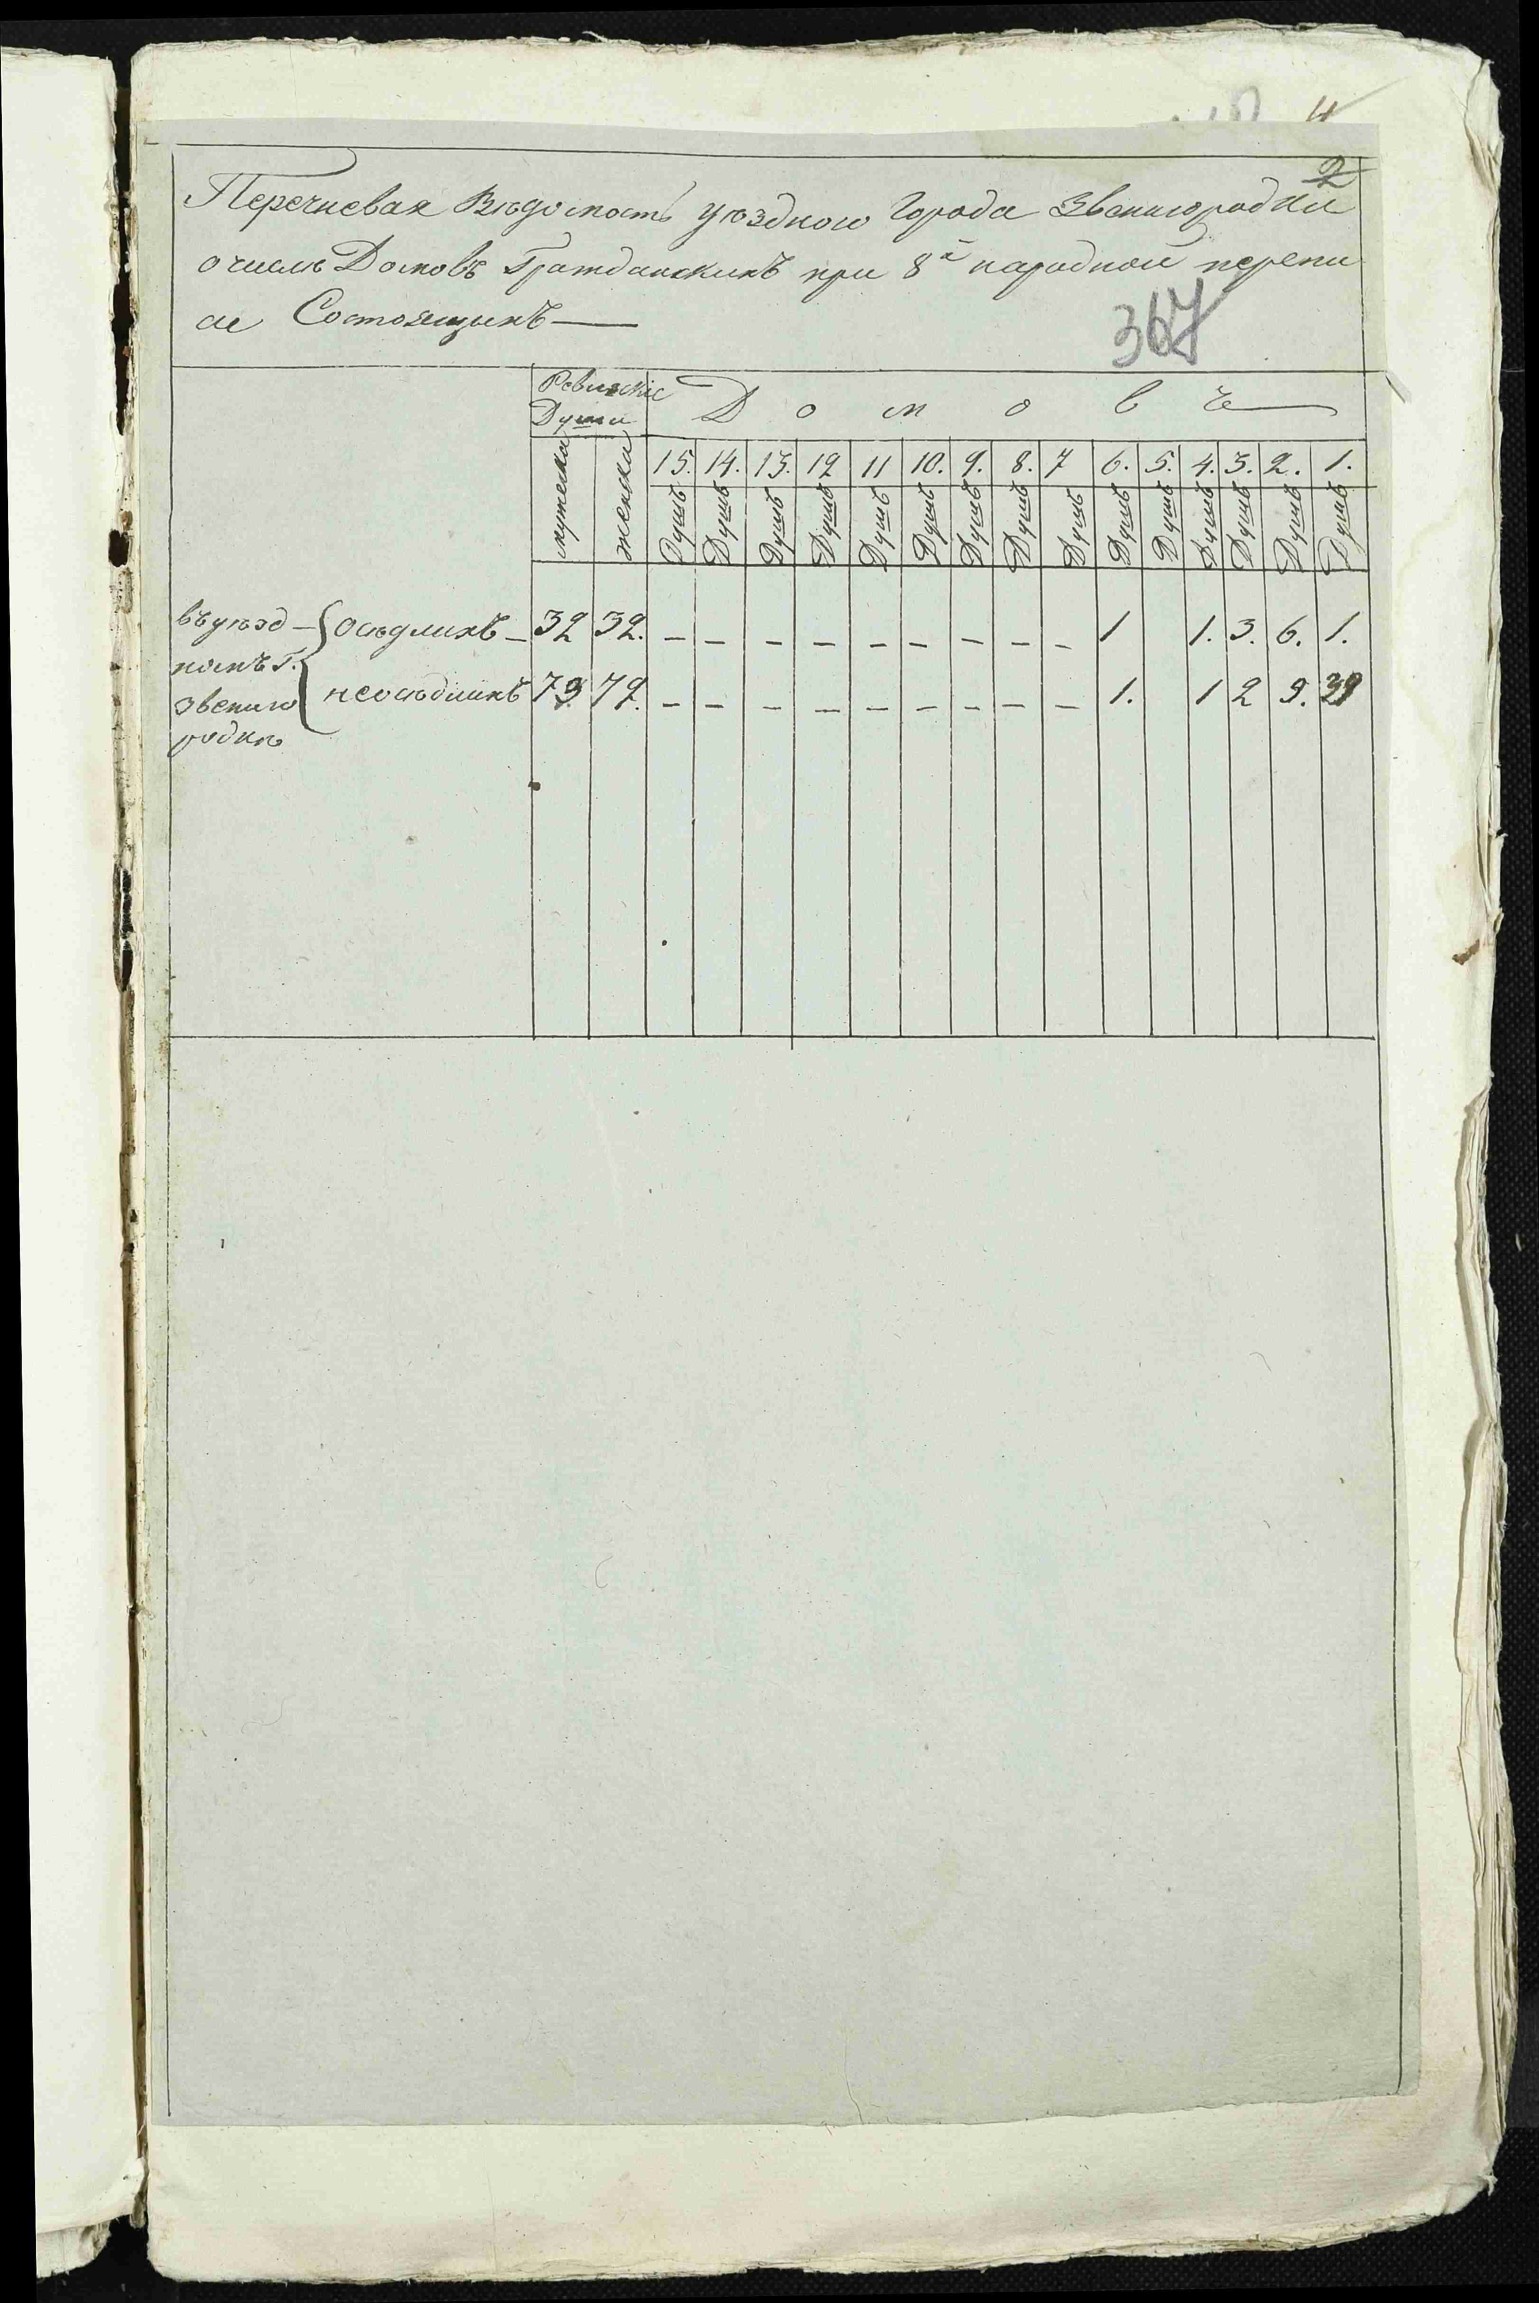 4
2
Перечневая Вѣдомость уѣзднаго Города Звенигородки
о числѣ Домовъ Гражданскихъ при 8й народной перепи
си Состоящихъ —
367
Ревизскіе Души
Домовъ
мужеска женска 15. 14. 13. 12 11 10. 9. 8. 7 6. 5. 4. 3. 2. 1.
Душъ Душъ Душъ Душъ Душъ Душъ Душъ Душъ Душъ Душъ Душъ Душъ Душъ Душъ Душъ
въ уѣзд – осѣдлихъ – 32 32. – – – – – – – – – 1 1. 3. 6. 1.
номъ г.
звениго неосѣдлихъ 79. – – – – – – – – – 1. 1 2 9.
родкѣ